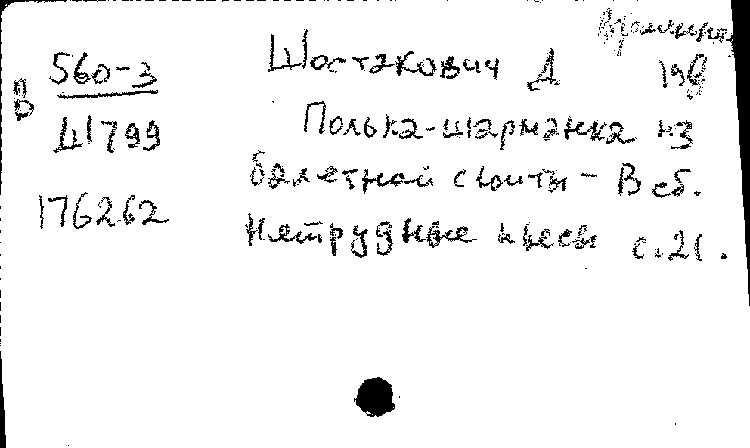 560-3
Ш799
176262
Шостакович Д
Полька-шарманка из
балетной сюиты - В сб.
Нетрудные пьесы с.21.